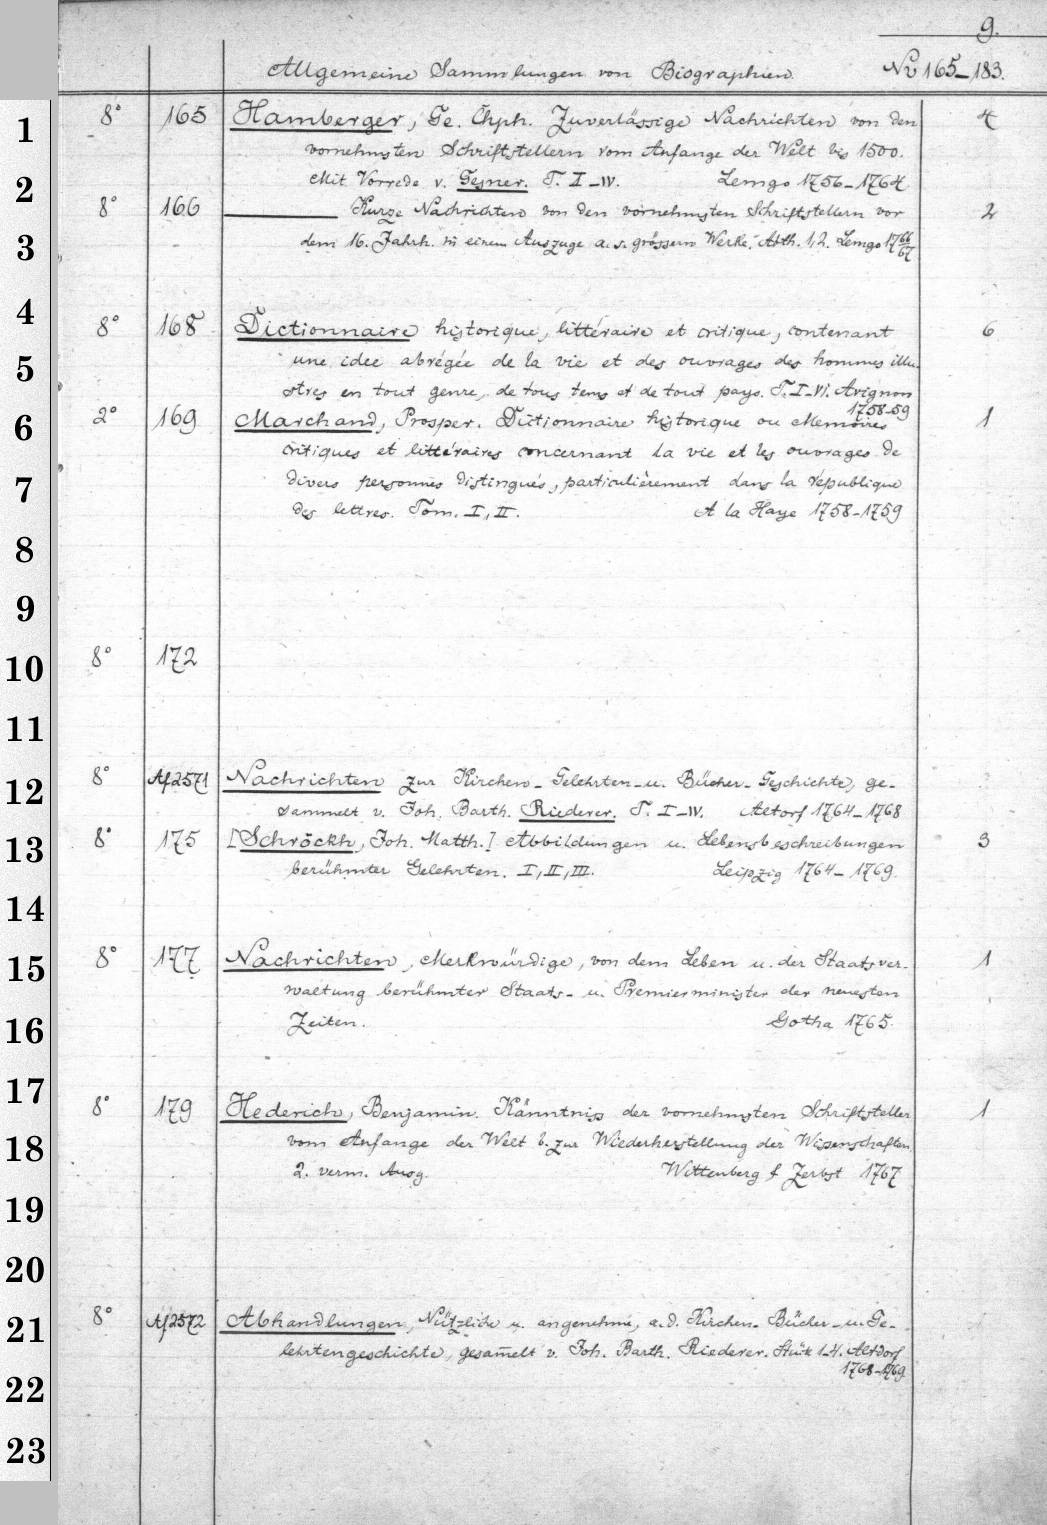 9.
Allgemeine Sammlungen von Biographien. No 165-183.
1
8° 165 Hamberger, Ge. Chph. Zuverlässige Nachrichten von den 4
vornehmsten Schriftstellern vom Anfange der Welt bis 1500.
2
Mit Vorrede v. Gesner. T. I-IV. Lemgo 1756-1764
8° 166 ——— Kurze Nachrichten von den vornehmsten Schriftstellern vor 2
3
dem 16. Jahrh. in einem Auszuge a. s. grössern Werke. Abth. 1, 2. Lemgo 1766/67
4
8° 168 Dictionnaire historique, littéraire et critique, contenant 6
5
une idee abrégée de la vie et des ouvrages des hommes illu-
stres en tout genre, de tous tems et de tout pays. T. I-VI. Avignon
1758-59
6
2° 169 Marchand, Prosper. Dictionnaire historique ou Memoires 1
critiques et littéraires concernant la vie et les ouvrages de
7
divers personnes distingués, particulièrement dans la république
des lettres. Tom. I, II. A la Haye 1758-1759
8
9
10
8° 172
11
12
8° Af 2571 Nachrichten zur Kirchen- Gelehrten- u. Bücher- Geschichte, ge-
sammelt v. Joh. Barth. Riederer. T. I-IV. Altorf 1764-1768
13
8° 175 [Schröckh, Joh. Matth.] Abbildungen u. Lebensbeschreibungen 3
berühmter Gelehrten. I, II, III. Leipzig 1764-1769.
14
15
8° 177 Nachrichten, Merkwürdige, von dem Leben u. der Staatsver- 1
waltung berühmter Staats- u. Premierminister der neuesten
16
Zeiten. Gotha 1765.
17
8° 179 Hederich, Benjamin. Känntniss der vornehmsten Schriftsteller 1
18
vom Anfange der Welt b. zur Wiederherstellung der Wissenschaften.
2. verm. Ausg. Wittenberg & Zerbst 1767
19
20
21
8° Af 2572 Abhandlungen, Nützliche u. angenehme, a. d. Kirchen- Bücher- u. Ge-
lehrtengeschichte, gesam̅elt v. Joh. Barth. Riederer. Stück 1-4. Altdorf
1768-1769
22
23